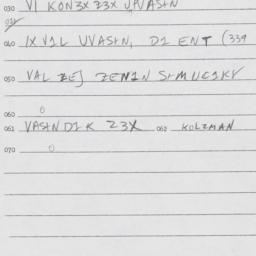 030 VI KON3X Z3X UPVASHN
031
040 IX V1L UVASHN, D1 ENT (339
050 VAL ZEJ ZEN1N S+MUC1KY
060 0
061 VASHND1K Z3X 062 KOLZMAN
070 0